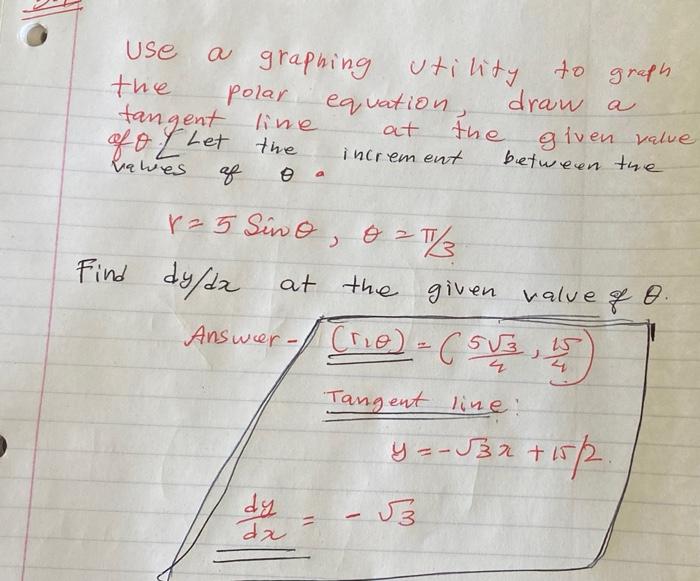 Use a graphing utility to graph
the polar equation, draw a
tangent line at the given value
of θ. [Let the increment between the
values of θ.
r = 5 Sin θ, θ = π/3
Find dy/dx at the given value of θ.
Answer - (r, θ) = (5√3/4, 15/4)
Tangent line:
y = -√3x + 15/2.
dy/dx = - √3